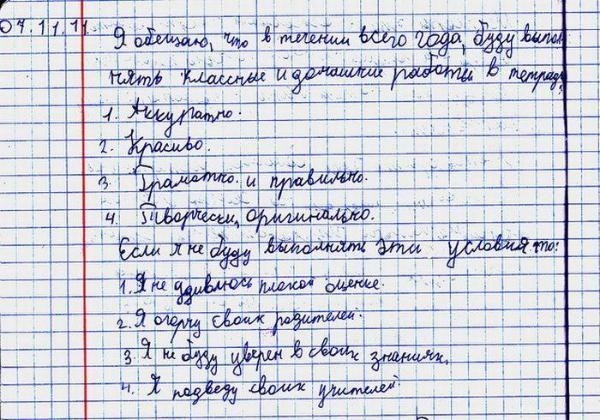 07.11.11
Я обещаю, что в течении всего года, буду выпол
нять классные и домашние работы в тетради:
1. Аккуратно.
2. Красиво.
3. Граматно и правильно.
4. Творчески, оригинально.
Если я не буду выполнять эти условия то:
1. Я не удивлюсь плохой оценке.
2. Я огорчу своих родителей.
3. Я не буду уверен в своих знаниях.
4. Я подведу своих учителей.